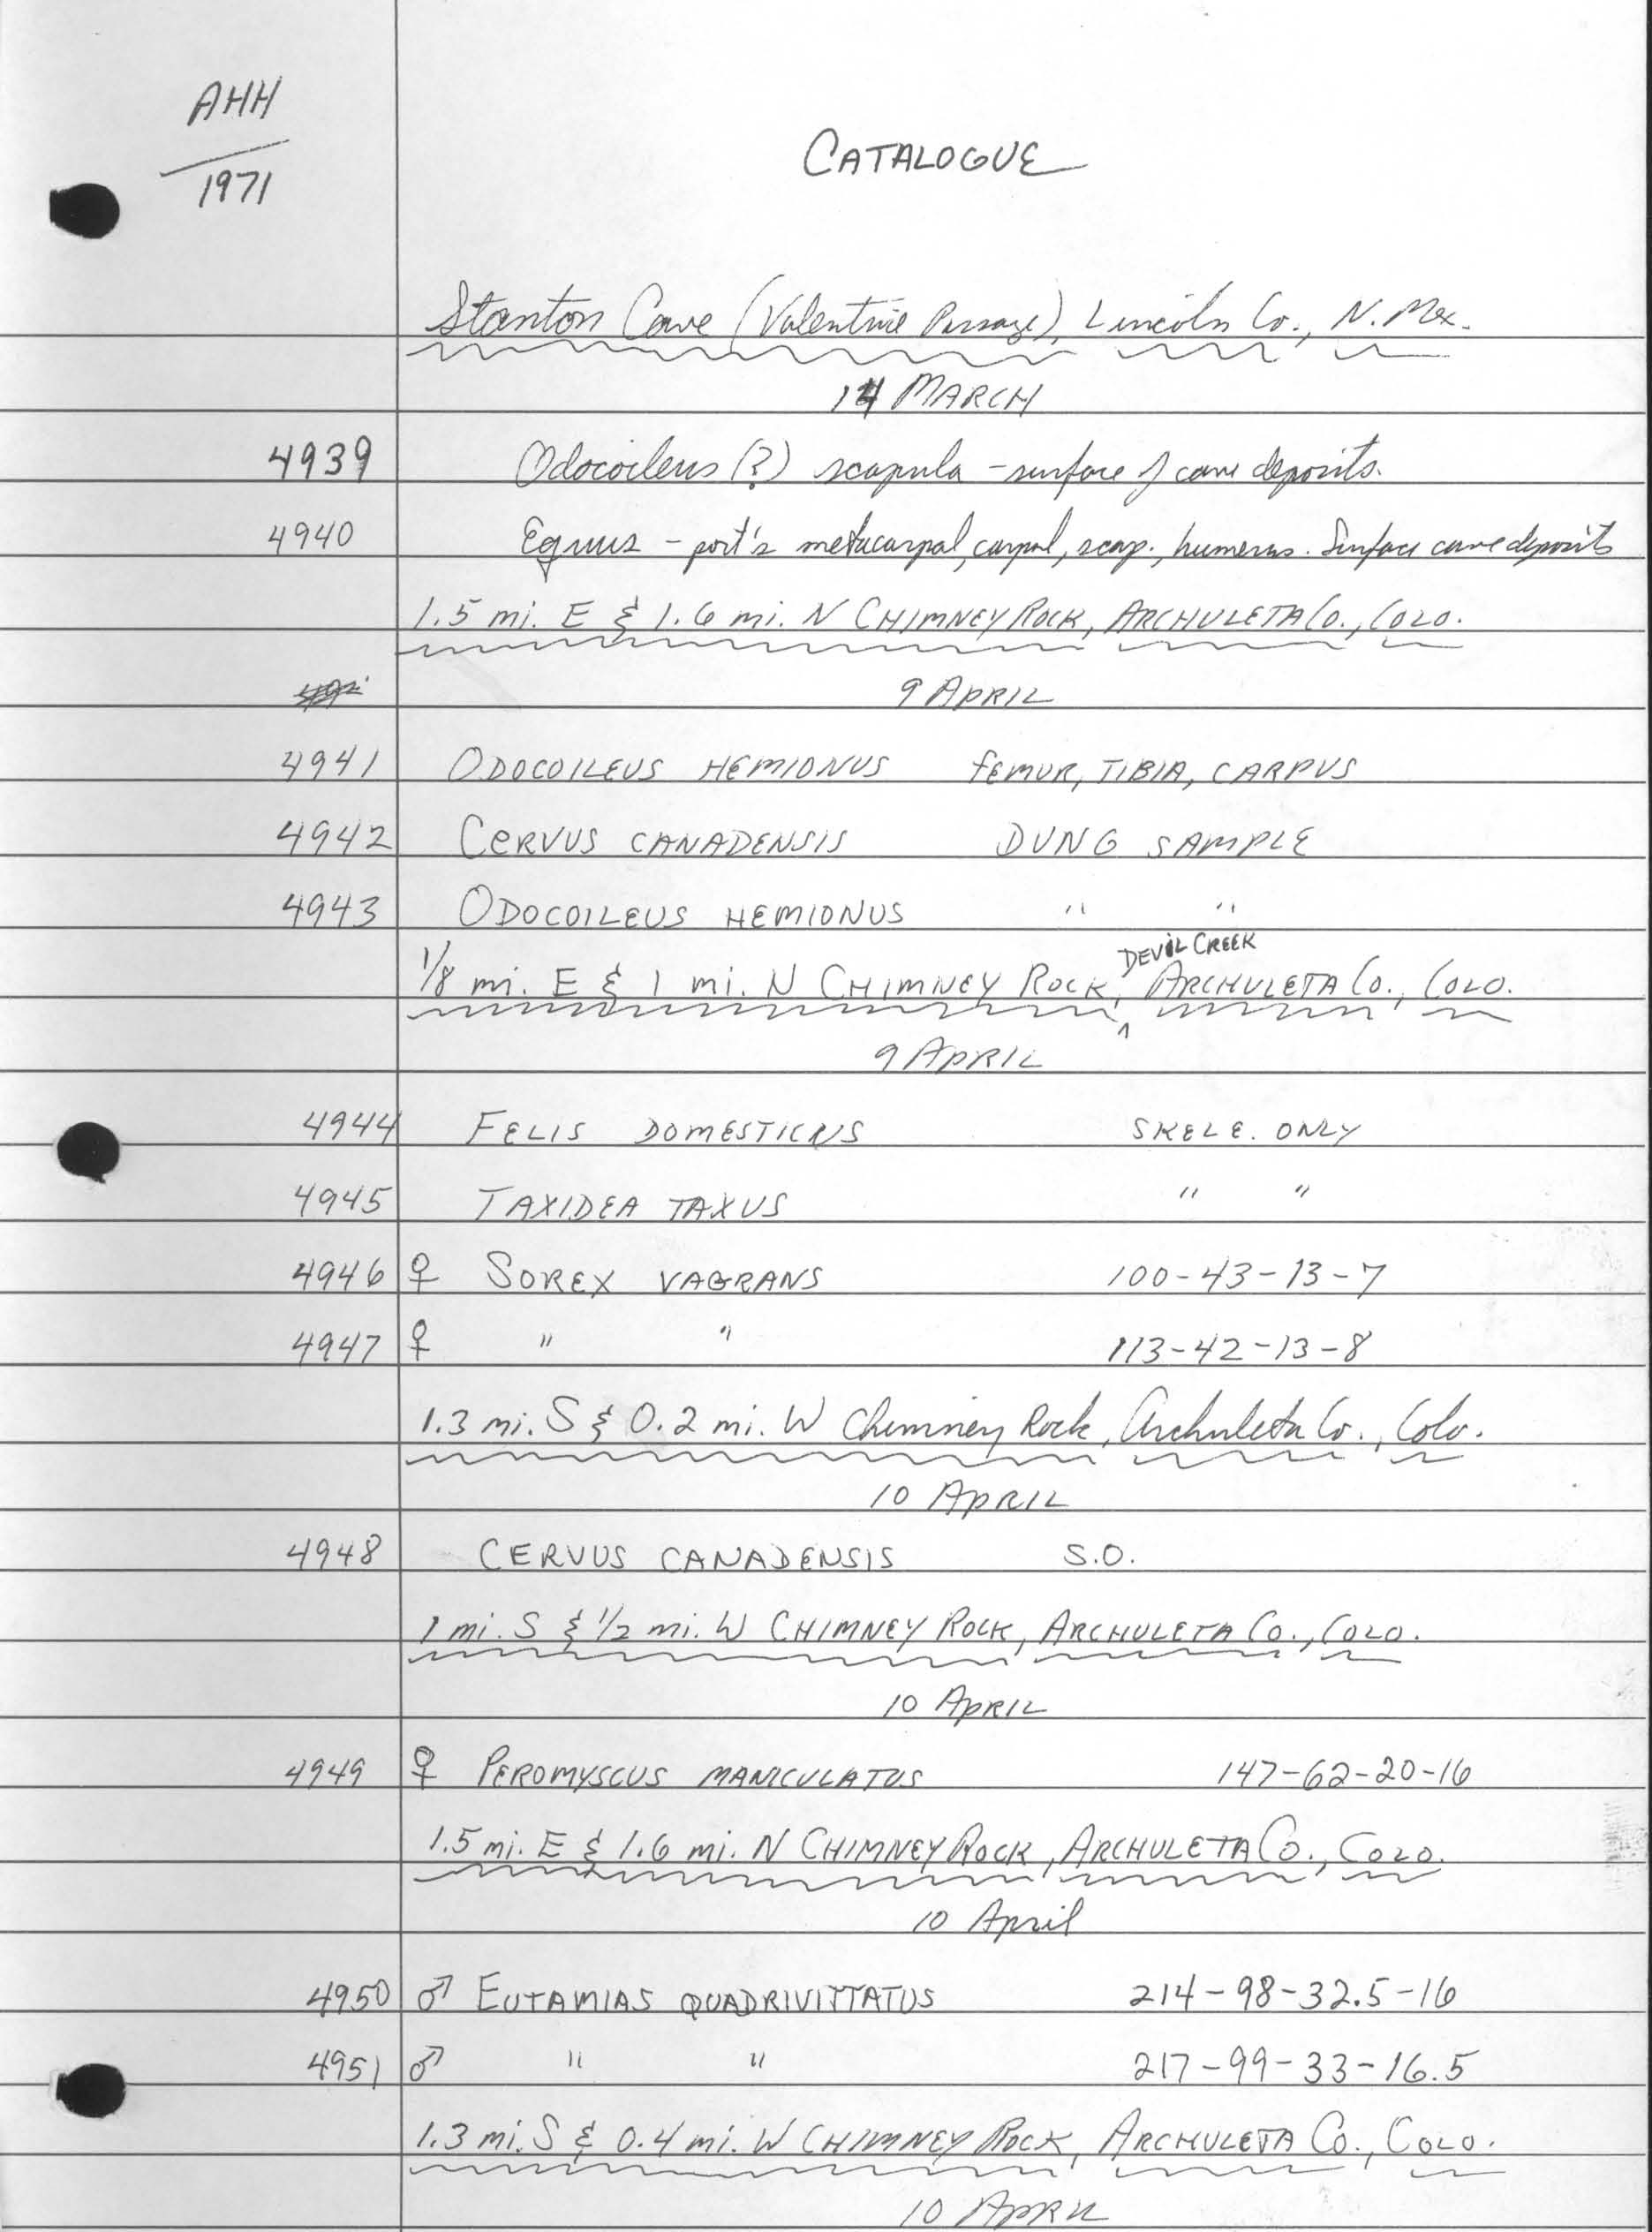 AHH
1971
CATALOGUE
Stanton Cave (Valentine Passage), Lincoln Co., N. Mex.
14 MARCH
4939 Odocoileus (?) scapula - surface of cave deposits.
4940 Equus - port's metacarpal, carpal, scap., humerus. Surface cave deposits
1.5 mi. E & 1.6 mi. N CHIMNEY ROCK, ARCHULETA CO., COLO.
9 APRIL
4941 ODOCOILEUS HEMIONUS FEMUR, TIBIA, CARPUS
4942 CERVUS CANADENSIS DUNG SAMPLE
4943 ODOCOILEUS HEMIONUS " "
DEVIL CREEK
1/8 mi. E & 1 mi. N CHIMNEY ROCK, ^ ARCHULETA CO., COLO.
9 APRIL
4944 FELIS DOMESTICUS SKELE. ONLY
4945 TAXIDEA TAXUS " "
4946 ♀ SOREX VAGRANS 100-43-13-7
4947 ♀ " " 113-42-13-8
1.3 mi. S & 0.2 mi. W Chimney Rock, Archuleta Co., Colo.
10 APRIL
4948 CERVUS CANADENSIS S.O.
1 mi. S & 1/2 mi. W CHIMNEY ROCK, ARCHULETA CO., COLO.
10 APRIL
4949 ♀ PEROMYSCUS MANICULATUS 147-62-20-16
1.5 mi. E & 1.6 mi. N CHIMNEY ROCK, ARCHULETA CO., COLO.
10 April
4950 ♂ EUTAMIAS QUADRIVITTATUS 214-98-32.5-16
4951 ♂ " " 217-99-33-16.5
1.3 mi. S & 0.4 mi. W CHIMNEY ROCK, ARCHULETA CO., COLO.
10 APRIL